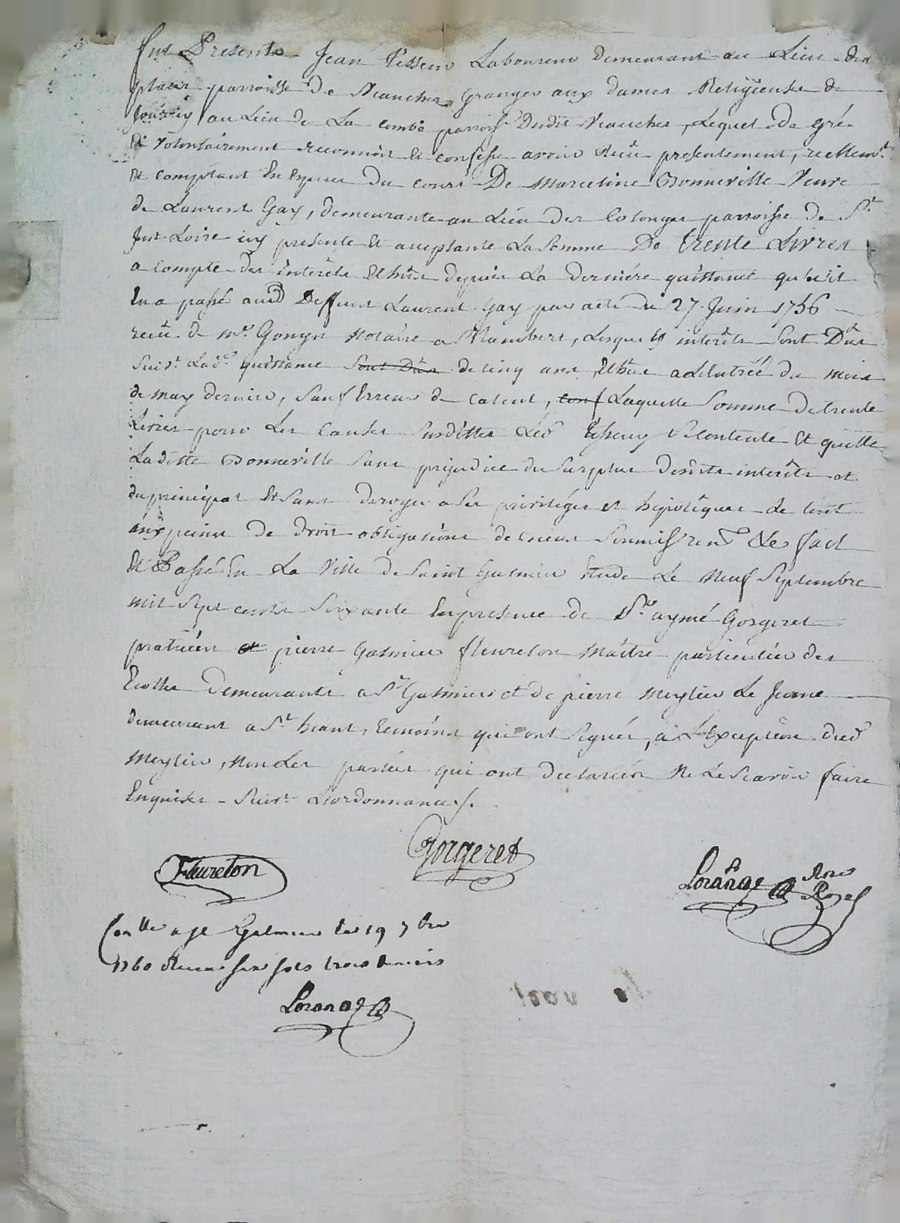 fut Présent Jean Tesseur Laboureur demeurant au Lieu du
plais parroisse de Veauches, Granger aux dames Religieuse de
au Lieu de La combe parroisse Dudit Veauches, Lequel de Gré
et Volontairement reconnoit et confesse avoir Reçu presentement, reellemt.
Et comptant En Espece du cours De Marceline Bonneville Veuve
de Laurent Gay, demeurante au Lieu des Colonges parroisse de St.
Just Loire icy présente Et aceptante La Somme De trente Livres
a compte des interêts Echus depuis La derniére quittance qu'il
En a passé aud. Deffunt Laurent Gay par acte du 27 Juin 1756
reçu de Me. Gonyn Notaire a Chambert, Lesquels interêts Sont Dus
Suivt. Lade. quittance Sont Dus de cinq ans, Echus a L'Entrée du mois
de may dernier, Sauf Erreur de Calcul, Laquelle Somme de trente
Livres pour Les Causes Susdittes Led. Tesseur s'est contenté Et quitte
Laditte Bonneville Sans prejudice du Surplus Desdits interêts et
du principal Et Sans deroger a Ses priviléges et hipotêques de tout
aux peines de Droit obligations Soumissions rend. &c fait
Et Passé En La Ville de Saint Galmier Etude Le Neuf Septembre
mil Sept cents Soixante En presence de Sr. aymé Gorgeret
praticien et pierre Galmier fleureton Maître particulier des
Ecolles demeurants a St. Galmier et de pierre Meylieu Le Jeune
demeurant a St. heant, temoins qui ont Signés, a L'Exception dud.
Meylieu, Non Les parties qui ont declarées Ne Le Scavoir faire
Enquises Suivt. L'ordonnance.
Gorgeret
Fleureton
Lorange Nore Royal
Conllé a St Galmier Le 19 7bre
1760 Reçu six sols trois deniers
Lorange